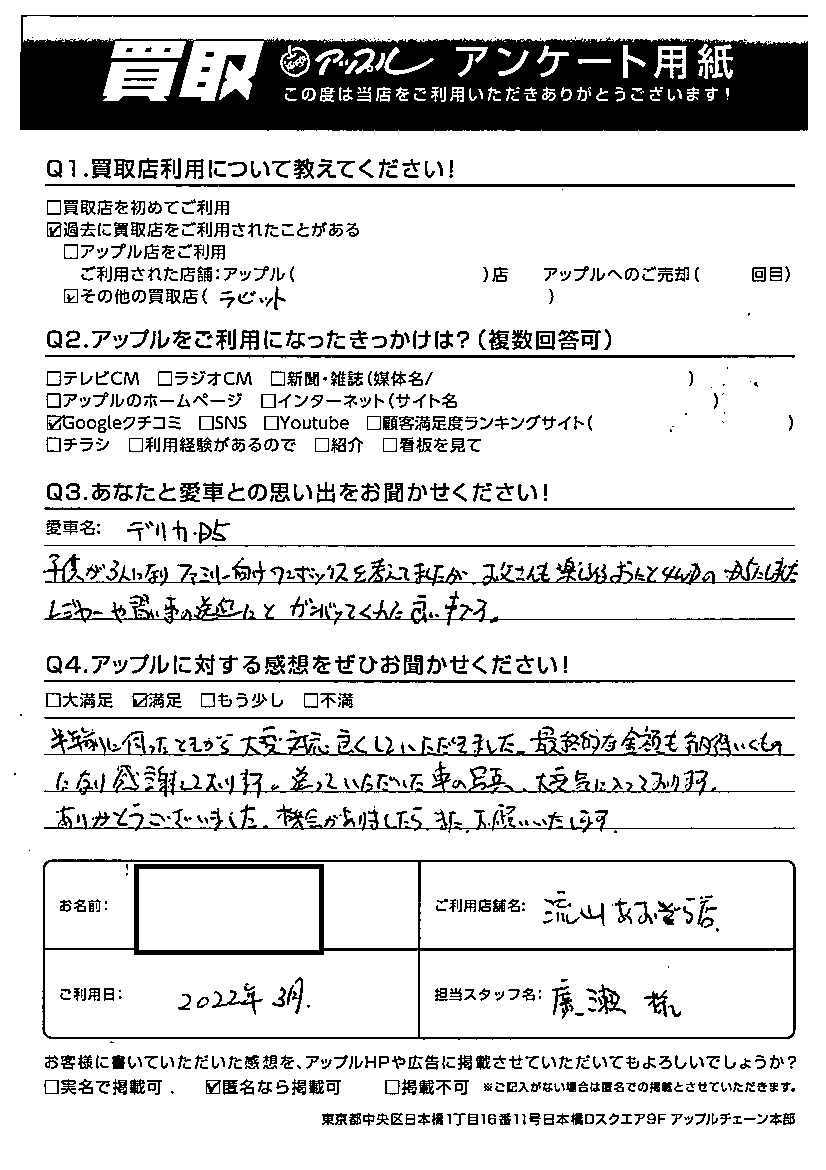 買取 アップル アンケート用紙
この度は当店をご利用いただきありがとうございます!
Q1.買取店利用について教えてください!
□買取店を初めてご利用
☑過去に買取店をご利用されたことがある
□アップル店をご利用
ご利用された店舗:アップル( )店 アップルへのご売却( 回目)
☑その他の買取店( ラビット )
Q2.アップルをご利用になったきっかけは?(複数回答可)
□テレビCM □ラジオCM □新聞・雑誌(媒体名/ )
□アップルのホームページ □インターネット(サイト名 )
☑Googleクチコミ □SNS □Youtube □顧客満足度ランキングサイト( )
□チラシ □利用経験があるので □紹介 □看板を見て
Q3.あなたと愛車との思い出をお聞かせください!
愛車名: デリカD5
子供が3人になり ファミリー向け ワンボックスを考えてましたが お父さんも楽しめる
レジャーや習い事の送迎にと ガンバッてくれた良い車です。
Q4.アップルに対する感想をぜひお聞かせください!
□大満足 ☑満足 □もう少し □不満
半年前に伺ったときから 大変対応良くしていただきました。最終的な金額も納得いくもの
になり感謝しております。送っていただいた車の写真、大変気に入っております。
ありがとうございました。機会がありましたら、また、お願いいたします。
お名前:
ご利用店舗名: 流山おおぞら店
ご利用日: 2022年3月.
担当スタッフ名: 廣瀬 様
お客様に書いていただいた感想を、アップルHPや広告に掲載させていただいてもよろしいでしょうか?
□実名で掲載可. ☑匿名なら掲載可 □掲載不可 ※ご記入がない場合は匿名での掲載とさせていただきます。
東京都中央区日本橋1丁目16番11号日本橋Dスクエア9F アップルチェーン本部